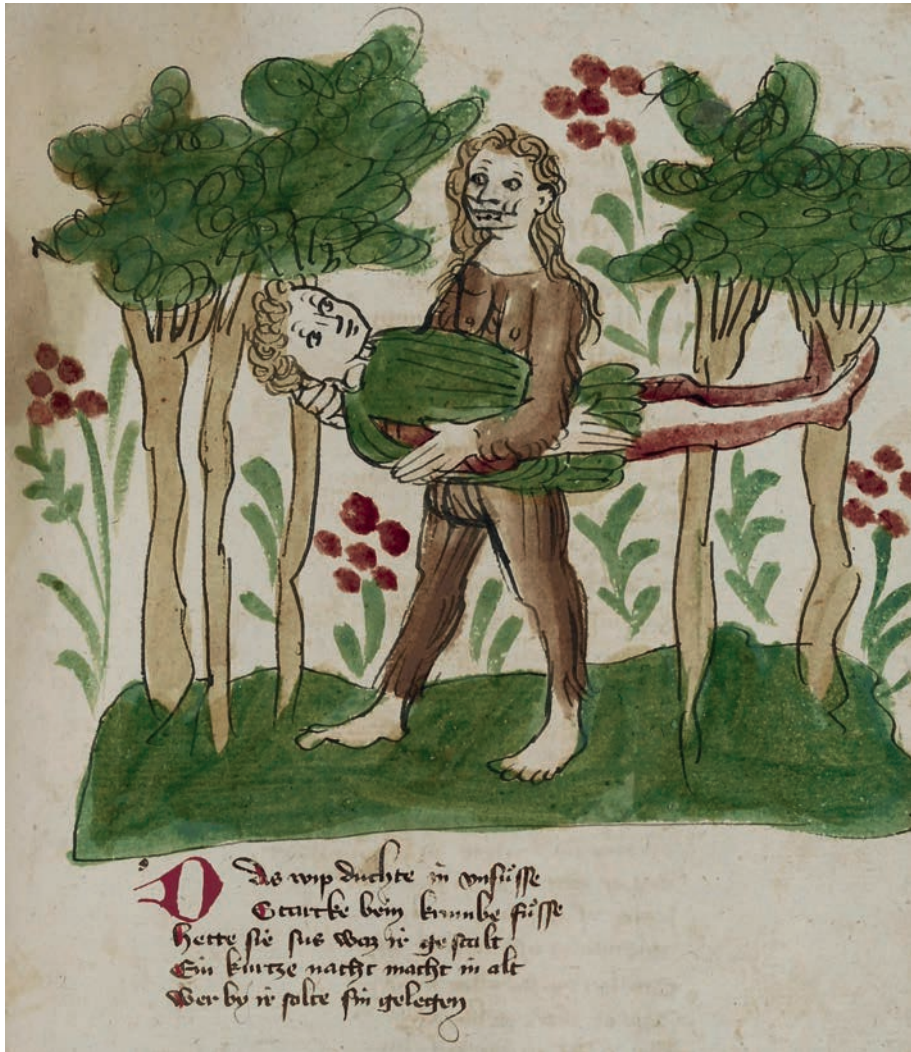 DAs wip duchte in vnsůsse
Starcke bein krumbe fůsse
Hette sie sus waz ir gestalt
Ein kurtze nacht macht in alt
Wer by ir solte sin gelegen